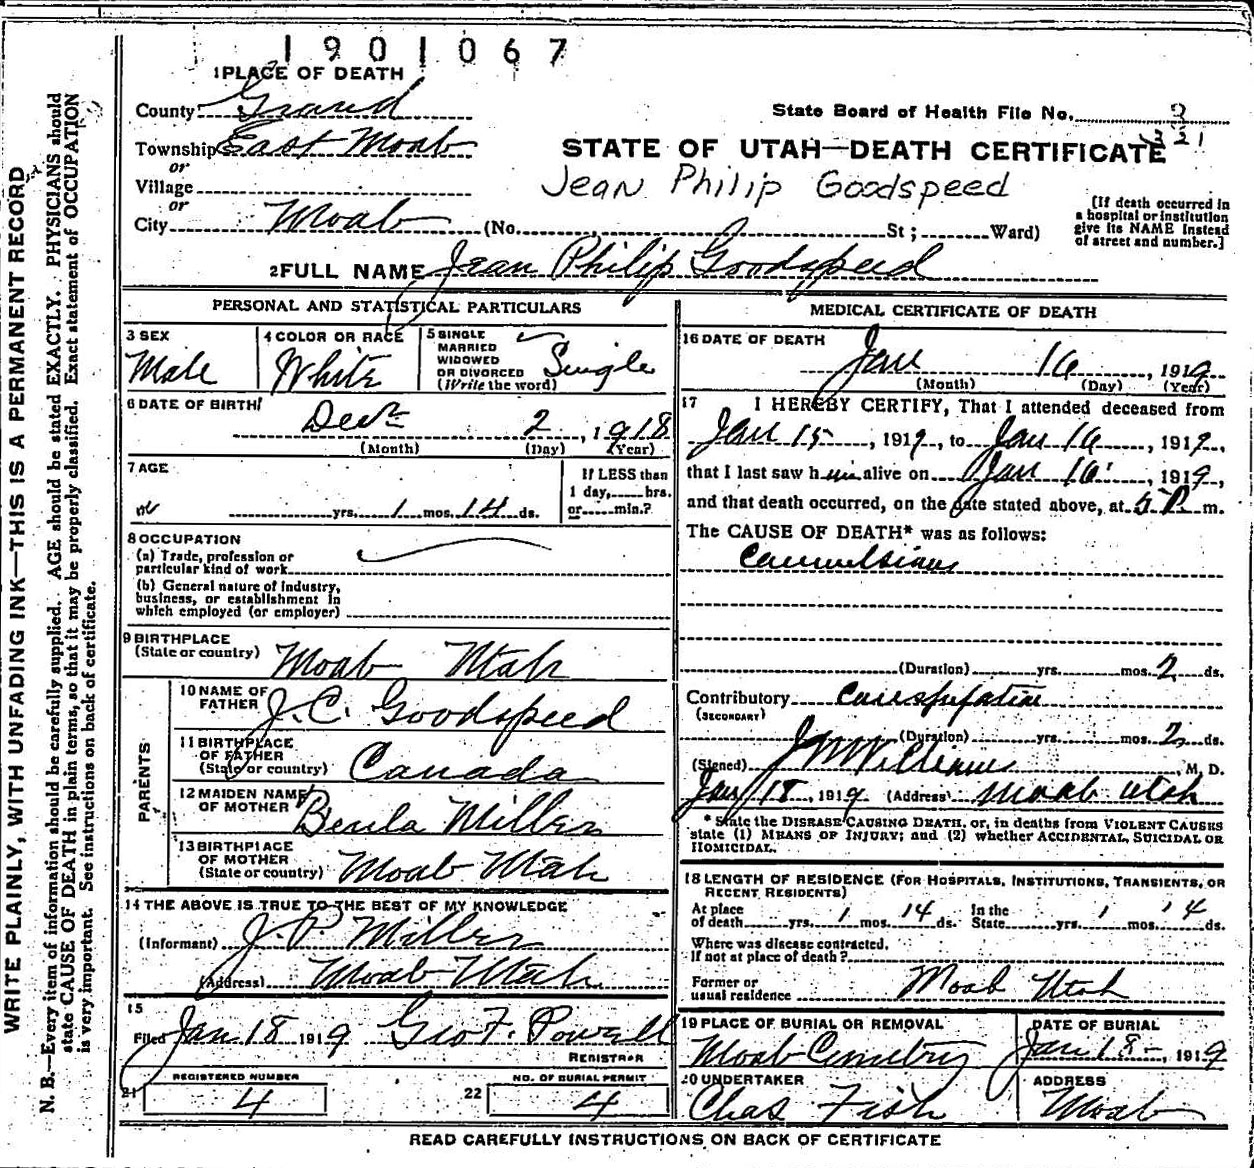 1901067
1 PLACE OF DEATH
County Grand
State Board of Health File No.
Township East Moab
or
STATE OF UTAH—DEATH CERTIFICATE
Village
Jean Philip Goodspeed
or
City Moab (No. St ; Ward)
[If death occurred in
a hospital or institution
give its NAME instead
of street and number.]
2 FULL NAME Jean Philip Goodspeed
PERSONAL AND STATISTICAL PARTICULARS
3 SEX
Male
4 COLOR OR RACE
White
5 SINGLE
MARRIED
WIDOWED
OR DIVORCED
(Write the word)
Single
6 DATE OF BIRTH
Decr 2, 1918
(Month) (Day) (Year)
7 AGE
yrs. 1 mos. 14 ds.
If LESS than
1 day, hrs.
or min.?
8 OCCUPATION
(a) Trade, profession or
particular kind of work
(b) General nature of industry,
business, or establishment in
which employed (or employer)
9 BIRTHPLACE
(State or country) Moab Utah
PARENTS
10 NAME OF
FATHER J. C. Goodspeed
11 BIRTHPLACE
OF FATHER
(State or country) Canada
12 MAIDEN NAME
OF MOTHER Beula Miller
13 BIRTHPLACE
OF MOTHER
(State or country) Moab Utah
14 THE ABOVE IS TRUE TO THE BEST OF MY KNOWLEDGE
(Informant) J. P. Miller
(Address) Moab Utah
15
Filed Jan 18 1919 Geo F. Powell
REGISTRAR
21 REGISTERED NUMBER
4
22 NO. OF BURIAL PERMIT
4
MEDICAL CERTIFICATE OF DEATH
16 DATE OF DEATH
Jan 16, 1919
(Month) (Day) (Year)
17 I HEREBY CERTIFY, That I attended deceased from
Jan 15, 1919, to Jan 16, 1919,
that I last saw him alive on Jan 16, 1919,
and that death occurred, on the date stated above, at 5 P. m.
The CAUSE OF DEATH* was as follows:
Convulsions
(Duration) yrs. mos. 2 ds.
Contributory Constipation
(SECONDARY)
(Duration) yrs. mos. 2 ds.
(Signed) J W Williams, M. D.
Jan 18, 1919 (Address) Moab Utah
* State the DISEASE CAUSING DEATH, or, in deaths from VIOLENT CAUSES
state (1) MEANS OF INJURY; and (2) whether ACCIDENTAL, SUICIDAL OR
HOMICIDAL.
18 LENGTH OF RESIDENCE (FOR HOSPITALS, INSTITUTIONS, TRANSIENTS, OR
RECENT RESIDENTS)
At place
of death yrs. 1 mos. 14 ds.
In the
State yrs. 1 mos. 14 ds.
Where was disease contracted,
if not at place of death?
Former or
usual residence Moab Utah
19 PLACE OF BURIAL OR REMOVAL
Moab Cemetry
DATE OF BURIAL
Jan 18, 1919
20 UNDERTAKER
Chas Fish
ADDRESS
Moab
READ CAREFULLY INSTRUCTIONS ON BACK OF CERTIFICATE
WRITE PLAINLY, WITH UNFADING INK—THIS IS A PERMANENT RECORD
N. B.—Every item of information should be carefully supplied. AGE should be stated EXACTLY. PHYSICIANS should
state CAUSE OF DEATH in plain terms, so that it may be properly classified. Exact statement of OCCUPATION
is very important. See instructions on back of certificate.